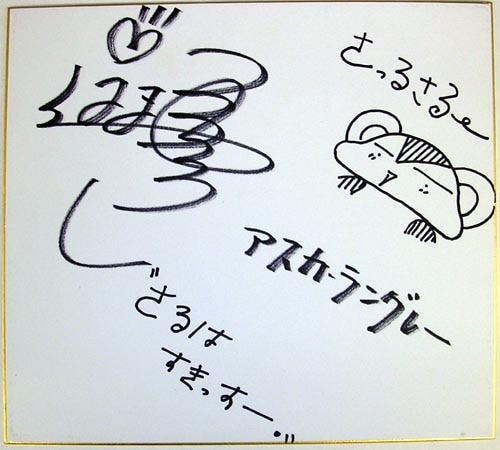 さっるさる〜
アスカ・ラングレー
"さるは
すきっすー."